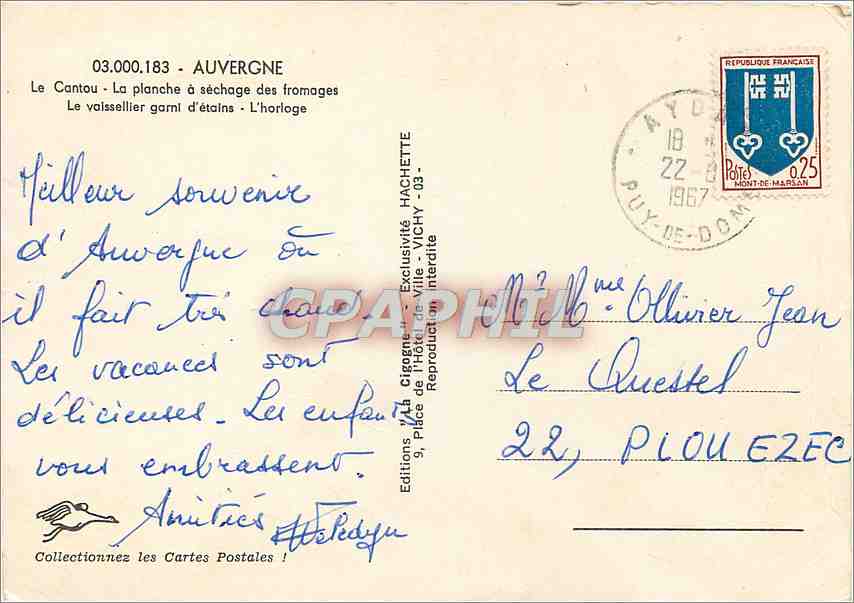 03.000.183 - AUVERGNE
Le Cantou - La planche à séchage des fromages
Le vaissellier garni d'étains - L'horloge
Meilleur souvenir
d'Auvergne où
il fait très chaud.
Les vacances sont
délicieuses - Les enfants
vous embrassent.
Amitiés
Collectionnez les Cartes Postales !
Editions "La Cigogne" - Exclusivité HACHETTE
9, Place de l'Hôtel de Ville - VICHY - 03 -
Reproduction interdite
CPAPHIL
AYDA
18
22-8
1967
PUY-DE-DOME
REPUBLIQUE FRANÇAISE
POSTES 0.25
MONT-DE-MARSAN
Mr Mme Ollivier Jean
Le Questel
22, PLOUEZEC